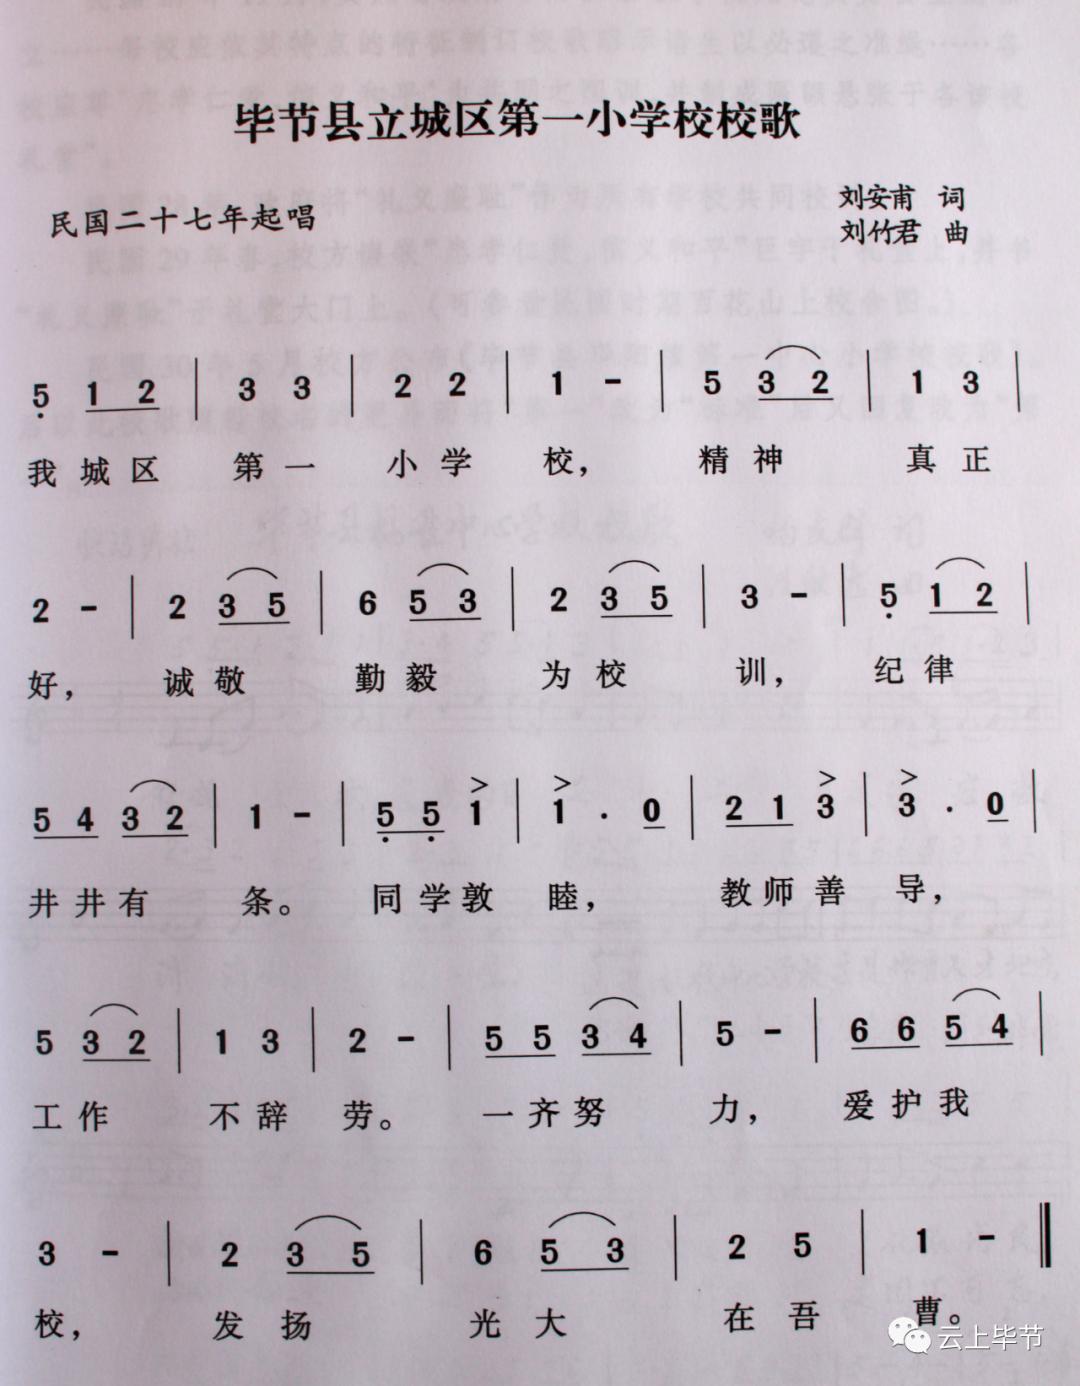 毕节县立城区第一小学校校歌
民国二十七年起唱
刘安甫 词
刘竹君 曲
5 1 2 | 3 3 | 2 2 | 1 - | 5 3 2 | 1 3 |
我 城 区 第 一 小 学 校， 精 神 真 正
2 - | 2 3 5 | 6 5 3 | 2 3 5 | 3 - | 5 1 2 |
好， 诚 敬 勤 毅 为 校 训， 纪 律
5 4 3 2 | 1 - | 5 5 1 | 1 . 0 | 2 1 3 | 3 . 0 |
井 井 有 条。 同 学 敦 睦， 教 师 善 导，
5 3 2 | 1 3 | 2 - | 5 5 3 4 | 5 - | 6 6 5 4 |
工 作 不 辞 劳。 一 齐 努 力， 爱 护 我
3 - | 2 3 5 | 6 5 3 | 2 5 | 1 - ‖
校， 发 扬 光 大 在 吾 曹。
云上毕节